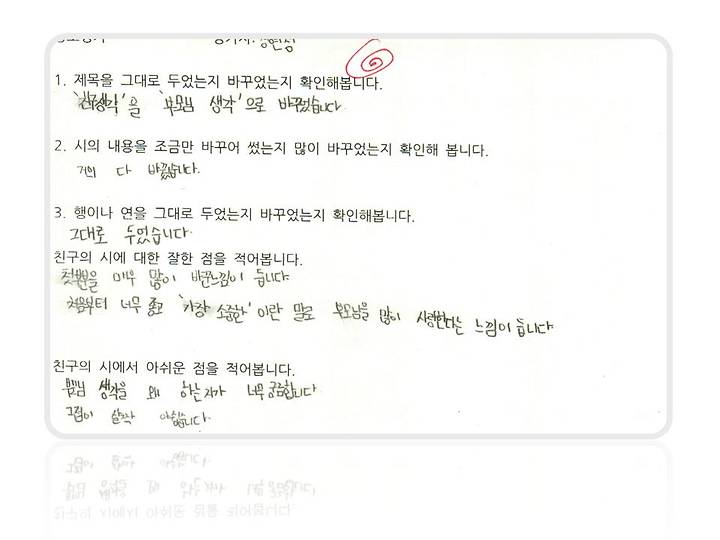 1. 제목을 그대로 두었는지 바꾸었는지 확인해봅니다.
'생각'을 '부모님 생각'으로 바꾸었습니다
2. 시의 내용을 조금만 바꾸어 썼는지 많이 바꾸었는지 확인해 봅니다.
거의 다 바꿨습니다.
3. 행이나 연을 그대로 두었는지 바꾸었는지 확인해봅니다.
그대로 두었습니다.
친구의 시에 대한 잘한 점을 적어봅니다.
매우 많이 바꾼느낌이 듭니다.
처음부터 너무 좋고 '가장 소중한'이란 말로 부모님을 많이 사랑한다는 느낌이 듭니다
친구의 시에서 아쉬운 점을 적어봅니다.
부모님 생각을 왜 하는지가 너무 궁금합니다
그점이 살짝 아쉽습니다.